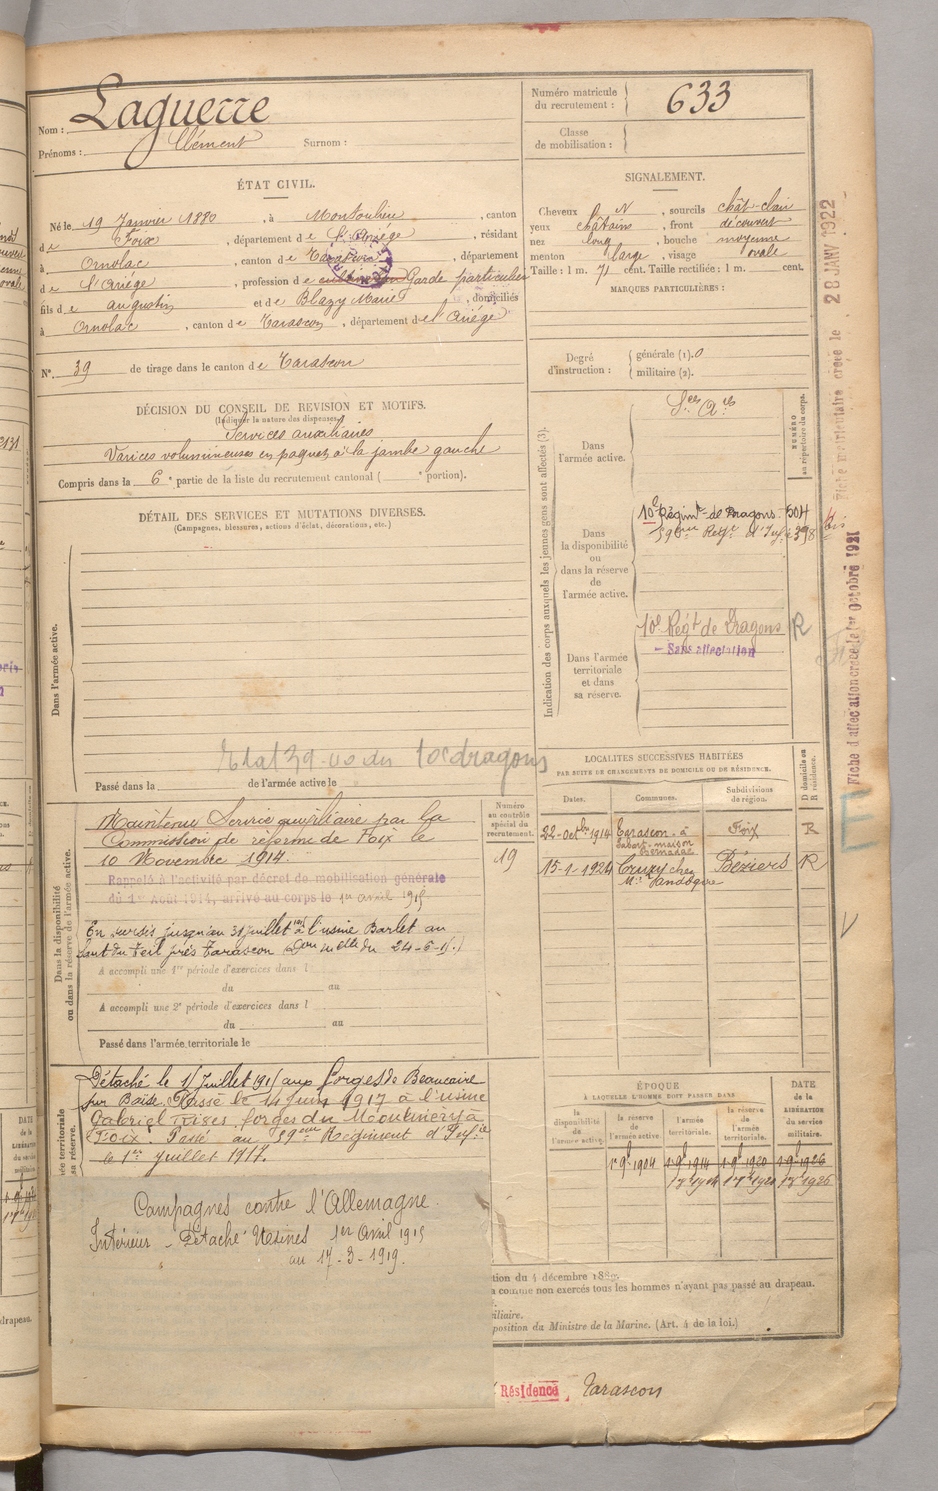 Nom : Laguerre
Prénoms : Clément Surnom :
Numéro matricule du recrutement : 633
Classe de mobilisation :
ÉTAT CIVIL.
Né le 19 Janvier 1880, à Montoulieu, canton
de Foix, département de l'Ariège, résidant
à Ornolac, canton de Tarascon, département
de l'Ariège, profession de Garde particulier
fils de augustin et de Blazy Marie, domiciliés
à Ornolac, canton de Tarascon, département de l'Ariège
N°. 39 de tirage dans le canton de Tarascon
SIGNALEMENT.
Cheveux N, sourcils chât-clair
yeux châtains, front découvert
nez long, bouche moyenne
menton large, visage ovale
Taille : 1 m. 71 cent. Taille rectifiée : 1 m. cent.
MARQUES PARTICULIÈRES :
Degré d'instruction : générale (1). 0
militaire (2).
DÉCISION DU CONSEIL DE REVISION ET MOTIFS.
(Indiquer la nature des dispenses)
Services auxiliaires
Varices volumineuses en paquets à la jambe gauche
Compris dans la 6e partie de la liste du recrutement cantonal ( portion).
DÉTAIL DES SERVICES ET MUTATIONS DIVERSES.
(Campagnes, blessures, actions d'éclat, décorations, etc.)
Dans l'armée active.
Etat 39 vu du 10e dragons
Passé dans la de l'armée active le
Indication des corps auxquels les jeunes gens sont affectés (3).
NUMÉRO au répertoire du corps.
Dans l'armée active.
Ses Ares
Dans la disponibilité ou dans la réserve de l'armée active.
10e Régimt de Dragons 504
59eme Regt d'Infie 398
Dans l'armée territoriale et dans sa réserve.
10e Régt de Dragons R
- Sans affectation
LOCALITÉS SUCCESSIVES HABITÉES
PAR SUITE DE CHANGEMENTS DE DOMICILE OU DE RÉSIDENCE.
Dates. Communes. Subdivisions de région. D domicile ou R résidence.
22-octbre 1914 Tarascon-à Sabart-maison Foix R
15-1-1924 Cruzy chez Béziers R
Dans la disponibilité ou dans la réserve de l'armée active.
Numéro au contrôle spécial du recrutement.
19
Maintenu Service auxiliaire par la
Commission de réforme de Foix le
10 Novembre 1914.
Rappelé à l'activité par décret de mobilisation générale
du 1er Août 1914, arrivé au corps le 1er avril 1915
En sursis jusqu'au 31 juillet 1915 à l'usine Barlet au
Saut du Teil près Tarascon
A accompli une 1re période d'exercices dans l
du au
A accompli une 2e période d'exercices dans l
du au
Passé dans l'armée territoriale le
Détaché le 1 Juillet 191 aux forges de Beaucaire
sur Baïse. Passé le 11 Juin 1917 à l'usine
Gabriel forges du Moulinery à
Foix. Passé au 59eme Régiment d'Infie
le 1er juillet 1917.
Campagnes contre l'Allemagne
Intérieur - Détaché Usines 1er Avril 1915
au 17-3-1919.
ÉPOQUE
À LAQUELLE L'HOMME DOIT PASSER DANS
la disponibilité de l'armée active. la réserve de l'armée active. l'armée territoriale. la réserve de l'armée territoriale.
DATE de la LIBÉRATION du service militaire.
1-9-1904 1-9-1914 1-9-1920 1-9-1926
tion du 4 décembre 1889.
a comme non exercés tous les hommes n'ayant pas passé au drapeau.
iliaire.
position du Ministre de la Marine. (Art. 4 de la loi.)
Résidence Tarascon
Fiche matriculaire créée le 28 JANV 1922
Fiche d'affectation créée le 1er Octobre 1921